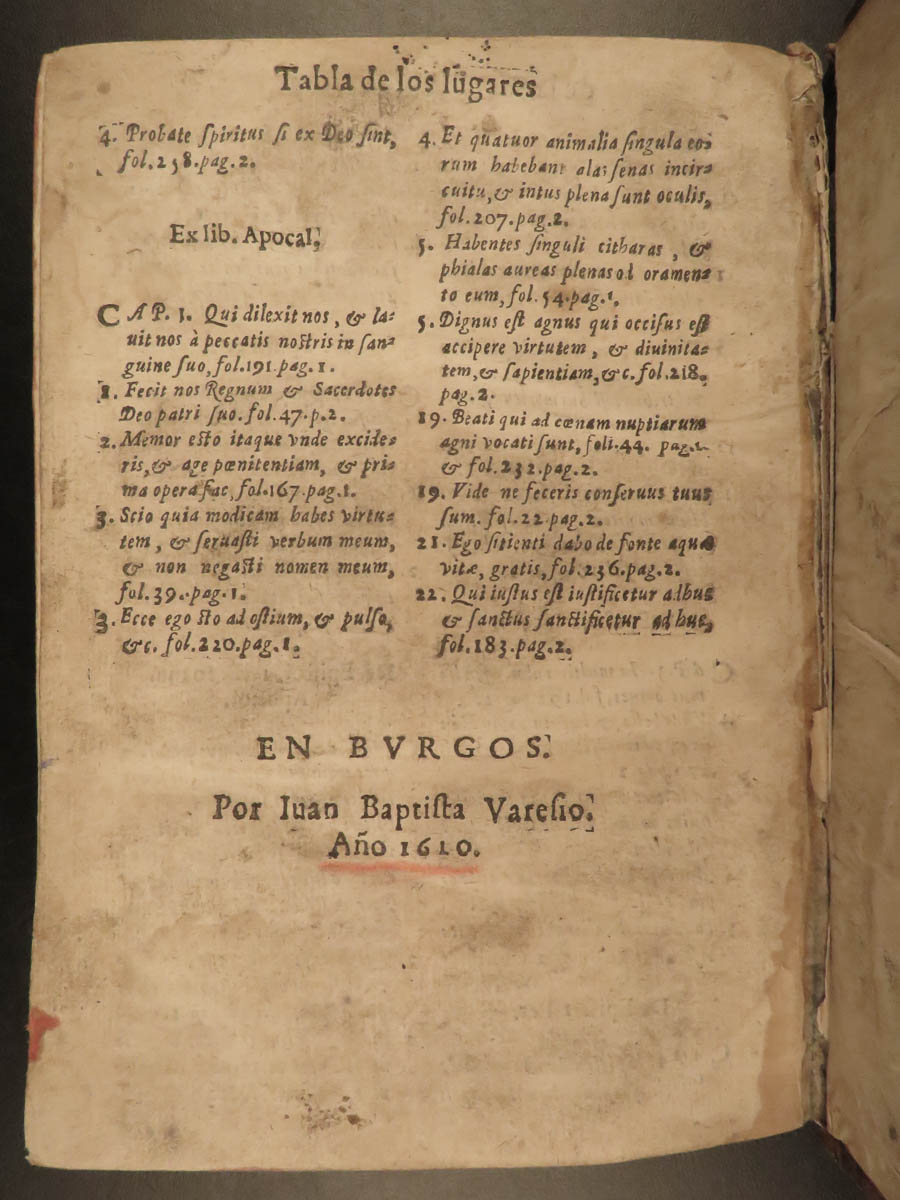 Tabla de los lugares
4. Probate ſpiritus ſi ex Deo ſint,
fol.238.pag.2.
Ex lib. Apocal.
CAP. 1. Qui dilexit nos, & la-
uit nos à peccatis noſtris in ſan-
guine ſuo, fol.191.pag.1.
1. Fecit nos Regnum & Sacerdotes
Deo patri ſuo. fol.47.p.2.
2. Memor eſto itaque vnde excide-
ris, & age pœnitentiam, & pri-
ma opera fac, fol.167.pag.1.
3. Scio quia modicam habes virtu-
tem, & ſeruaſti verbum meum,
& non negaſti nomen meum,
fol.39.pag.1.
3. Ecce ego ſto ad oſtium, & pulſo,
&c. fol.220.pag.1.
4. Et quatuor animalia ſingula eo-
rum habebant alas ſenas in circ-
cuitu, & intus plena ſunt oculis,
fol.207.pag.2.
5. Habentes ſinguli citharas, &
phialas aureas plenas
to eum, fol.54.pag.1.
5. Dignus eſt agnus qui occiſus eſt
accipere virtutem, & diuinita-
tem, & ſapientiam, &c. fol.218.
pag.2.
19. Beati qui ad cœnam nuptiarum
agni vocati ſunt, foli.44. pag.
& fol.232.pag.2.
19. Vide ne feceris conſeruus tuus
ſum. fol.22.pag.2.
21. Ego ſitienti dabo de fonte aquæ
vitæ, gratis, fol.236.pag.2.
22. Qui iuſtus eſt iuſtificetur adhuc
& ſanctus ſanctificetur adhuc,
fol.183.pag.2.
EN BVRGOS.
Por Iuan Baptiſta Vareſio.
Año 1610.